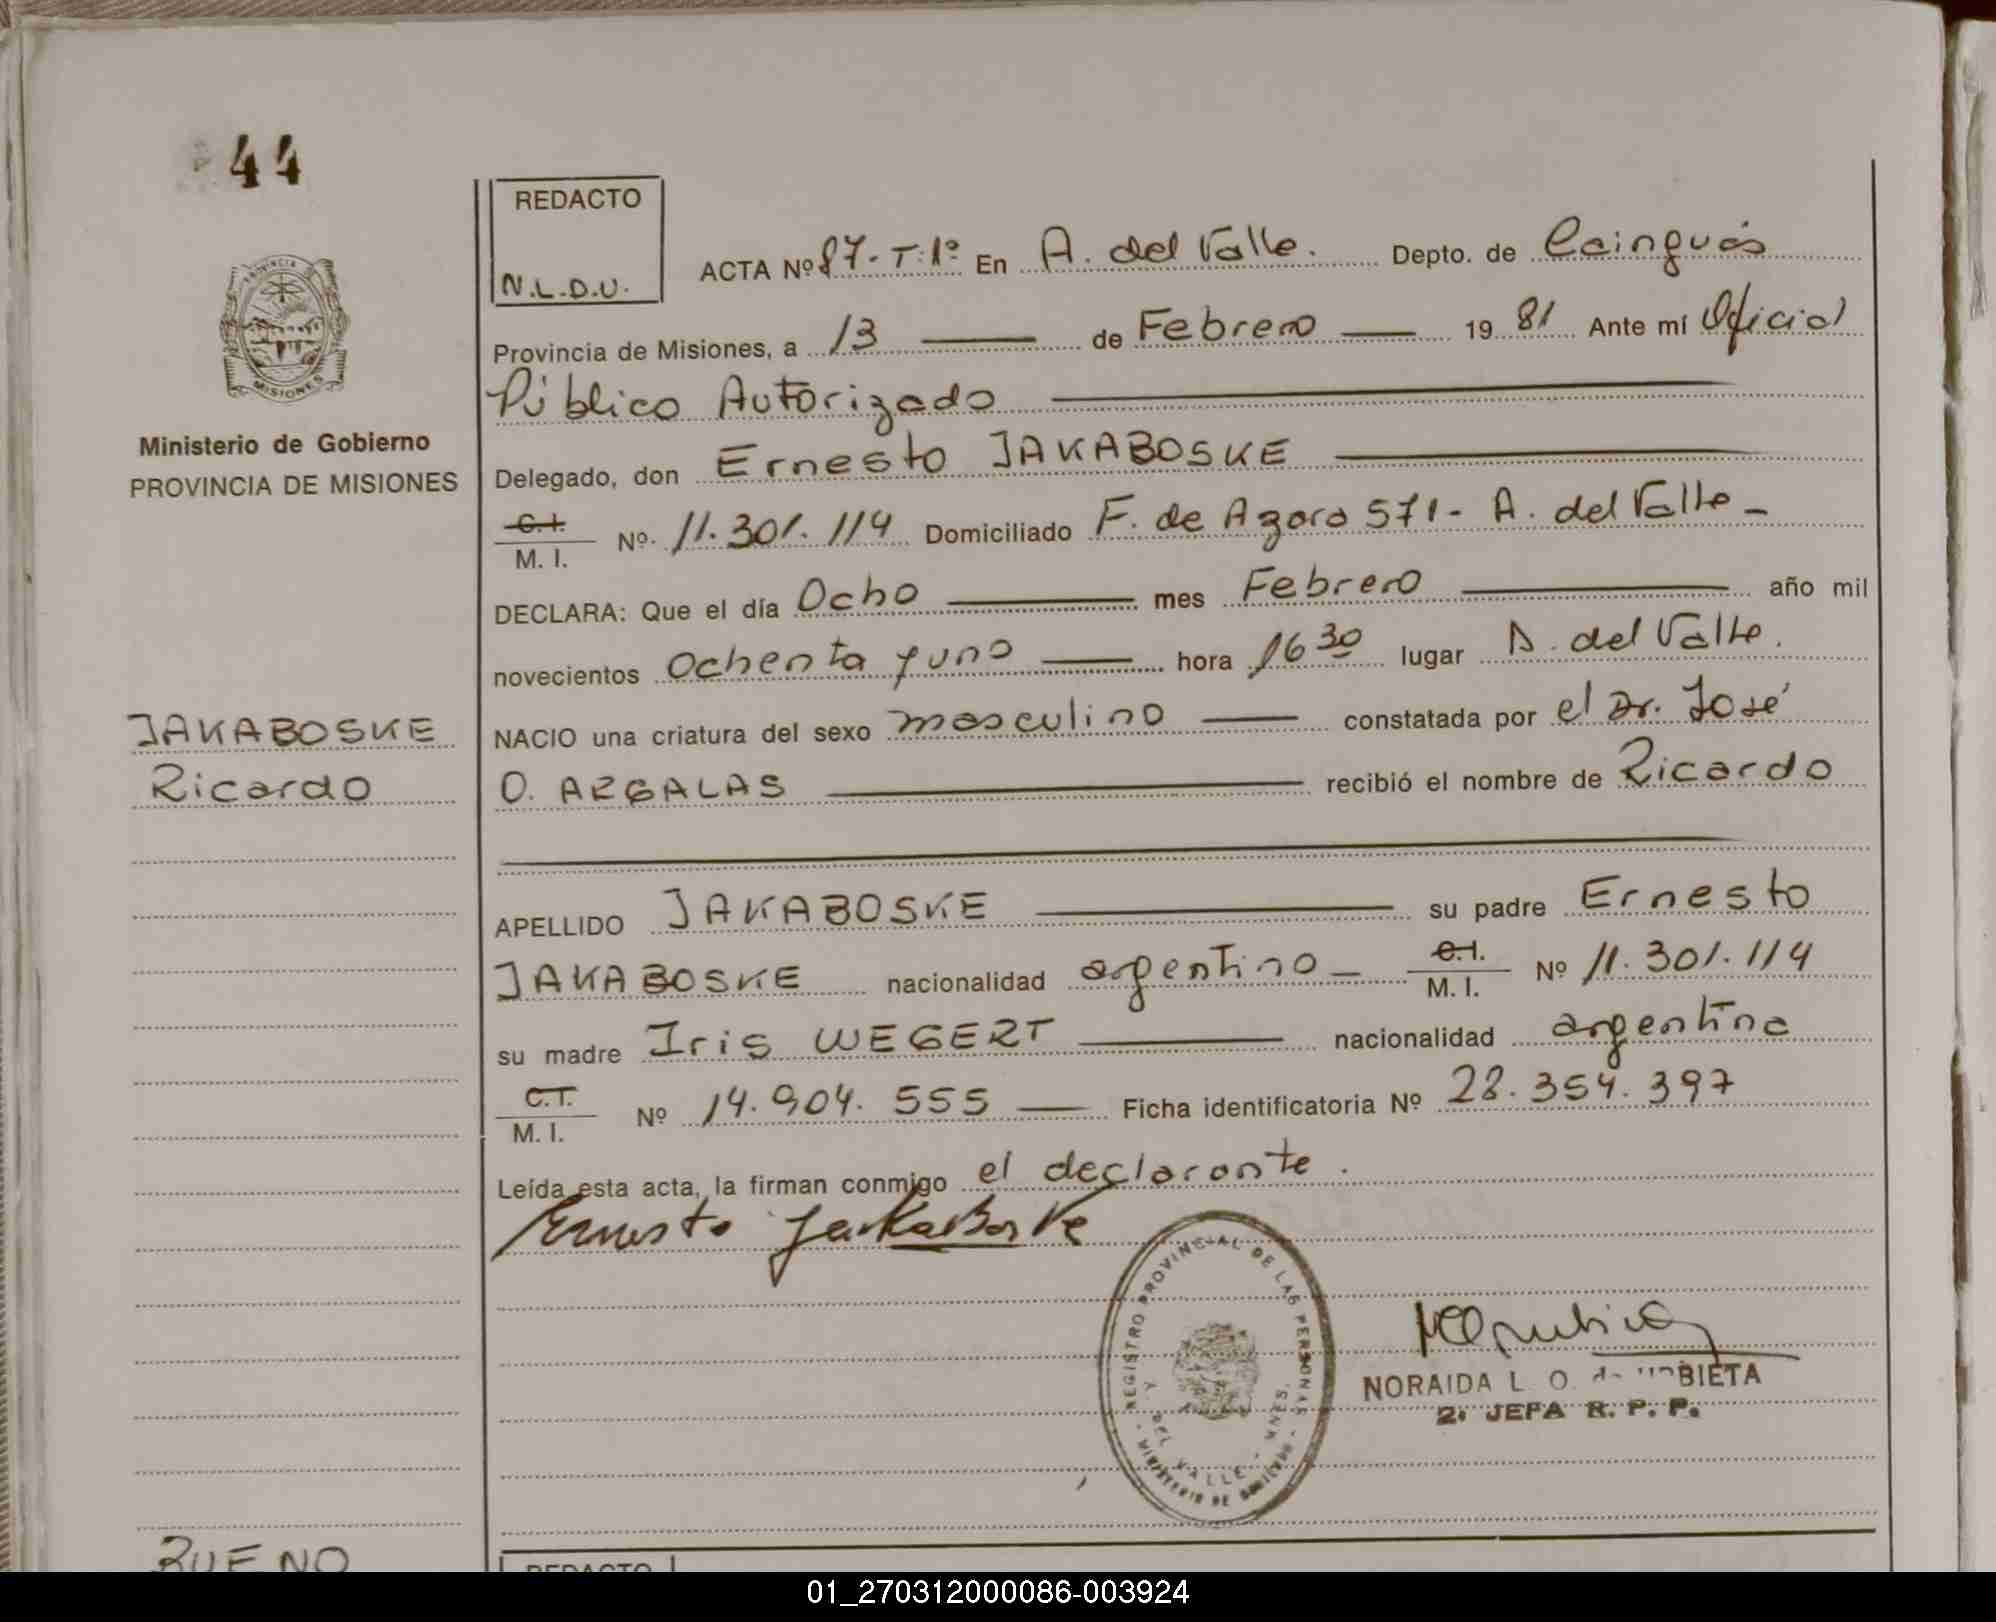 44
REDACTO
N.L.D.U.
ACTA Nº 87-T.1º En A. del Valle. Depto. de Cainguás
Provincia de Misiones, a 13 de Febrero 1981 Ante mí Oficial
Público Autorizado
Ministerio de Gobierno
PROVINCIA DE MISIONES
Delegado, don Ernesto JAKABOSKE
C.I.
M. I. Nº. 11.301.114 Domiciliado F. de Azara 571 - A. del Valle -
DECLARA: Que el día Ocho mes Febrero año mil
novecientos ochenta y uno hora 16 30 lugar A. del Valle.
JAKABOSKE
Ricardo
NACIO una criatura del sexo masculino constatada por el Dr. José
O. ARGALAS recibió el nombre de Ricardo
APELLIDO JAKABOSKE su padre Ernesto
JAKABOSKE nacionalidad argentino - C.I. M. I. Nº 11.301.114
su madre Iris WEGERT nacionalidad argentina
C.I.
M. I. Nº 14.904.555 Ficha identificatoria Nº 28.354.397
Leída esta acta, la firman conmigo el declarante.
Ernesto Jakaboske
REGISTRO PROVINCIAL DE LAS PERSONAS
DEL VALLE - MNES.
MINISTERIO DE GOBIERNO
NORAIDA L. O. de
2: JEFA R. P. P.
BUENO
REDACTO
PROVINCIA
MISIONES
01_270312000086-003924